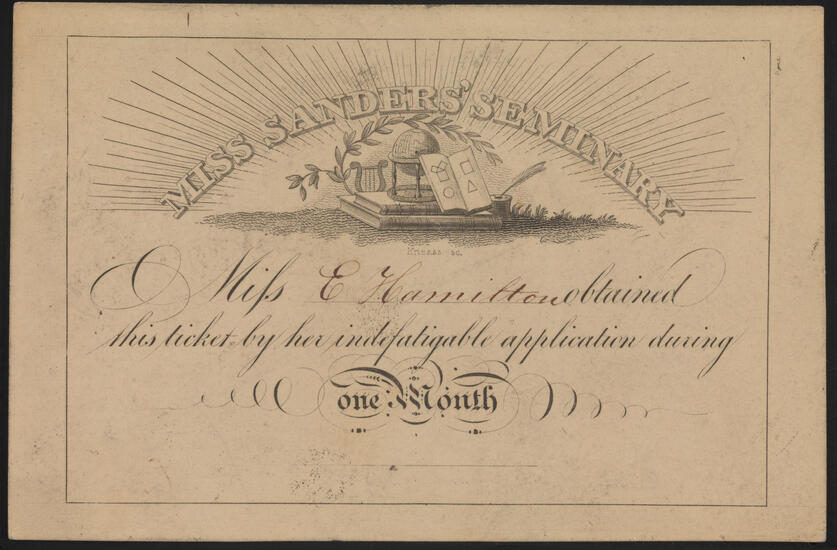 MISS SANDERS' SEMINARY
Kneass sc.
Miſs E Hamilton obtained
this ticket by her indefatigable application during
one Month